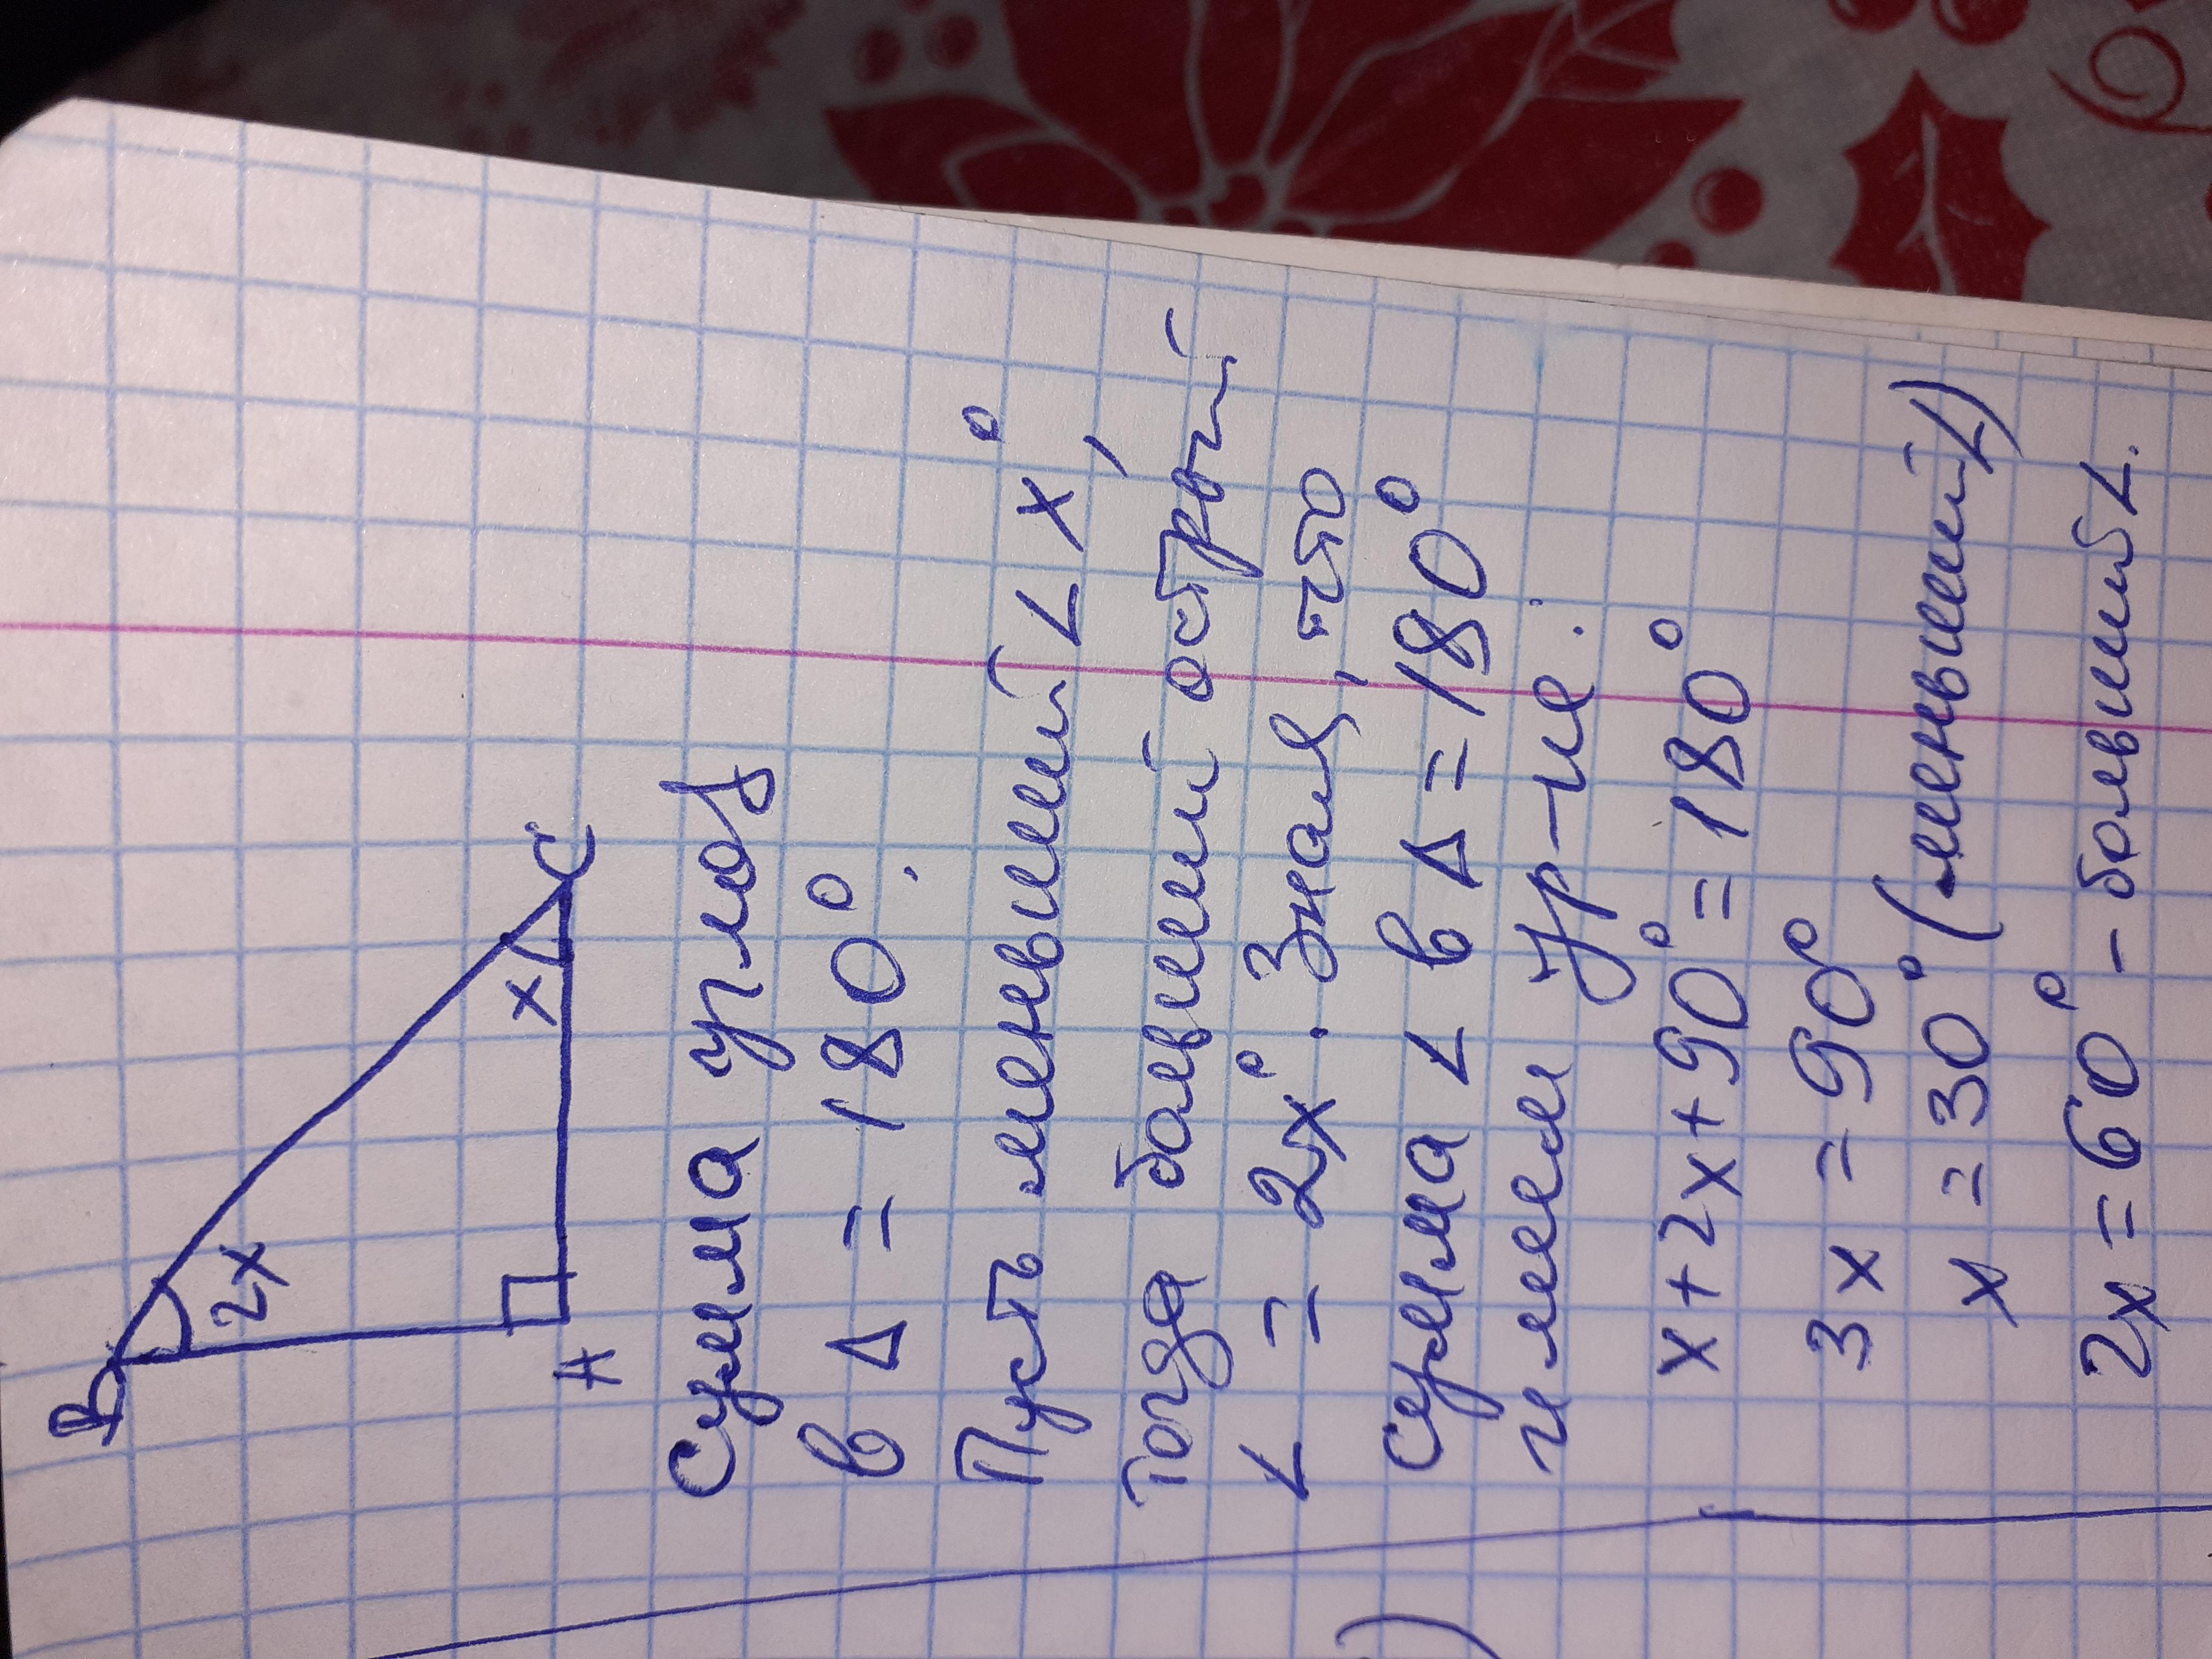 B
2x
x
A
C
Сумма углов
в Δ = 180°.
Пусть меньший ∠ x°,
тогда больший острый
∠ = 2x°. Зная, что
сумма ∠ в Δ = 180°
имеем ур-ие:
x + 2x + 90° = 180°
3x = 90°
x = 30° (меньший ∠)
2x = 60° - больший ∠.
)